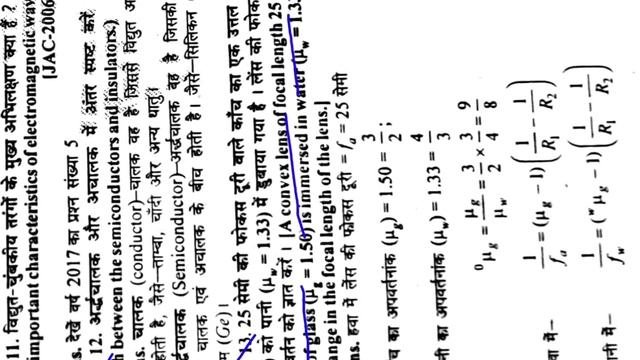 11. विद्युत-चुंबकीय तरंगों के मुख्य अभिलक्षण क्या हैं ?
important characteristics of electromagnetic wav
[JAC-2006
s. देखें वर्ष 2017 का प्रश्न संख्या 5
12. अर्द्धचालक और अचालक में अंतर स्पष्ट करें
h between the semiconductors and insulators.)
s. चालक (conductor)—चालक वह है जिससे विद्युत आ
होती है, जैसे—ताम्बा, चाँदी और अन्य धातु।
र्द्धचालक (Semiconductor)—अर्द्धचालक वह है जिसकी
चालक एवं अचालक के बीच होती है। जैसे—सिलिकन
म (Ge)।
13. 25 सेमी की फोकस दूरी वाले काँच का एक उत्तल
को पानी (μw = 1.33) में डुबाया गया है। लेंस की फोक
वर्तन को ज्ञात करें। [A convex lens of focal length 25
of glass (μg = 1.50) is immersed in water (μw = 1.3
ange in the focal length of the lens.]
ns. हवा में लेंस की फोकस दूरी = fa = 25 सेमी
च का अपवर्तनांक (μg) = 1.50 = 3/2 ;
नी का अपवर्तनांक (μw) = 1.33 = 4/3
μg = μg/μw = 3/2 × 3/4 = 9/8
वा में— 1/fa = (μg − 1) (1/R1 − 1/R2)
नी में— 1/fw = (wμg − 1) (1/R1 − 1/R2)